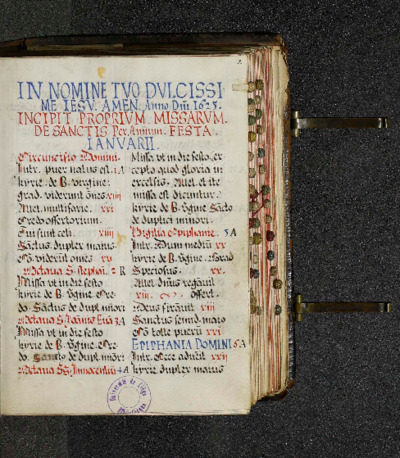 IN NOMINE TVO DVLCISSI
ME IESV. AMEN. Anno Dñi 1623.
INCIPIT PROPRIVM MISSARVM
DE SANCTIS Per Annum. FESTA
IANVARII.
Circuncisio Domini.
Intr. puer natus est. 1 A
kyrie de B. virgine:
grad. viderunt õnes xiij
Allel. multifarie. xvj
Credo offertorium.
Tui sunt celi xiiij
Sãctus duplex maius
Cõ. viderũt omẽs xv
Octaua S. stephai. 2 R
Missa vt in die festo
kyrie de B. Vgine. Cre
do. Sãctus de dupl. miñori
Octaua S. Ioannis Euã 3 A
Missa vt in die festo
kyrie de B. Vgine. Cre
do. Sancto de dupl. miñori
Octaua SS. Innocentiũ 4 A
Missa vt in die festo ex
cepto quod gloria in
excelsis. Allel. et ite
missa est dicuntur.
kyrie de B. Vgine Sãcto
de duplici minori.
Vigilia Epiphanie. 5 A
Intr. Dum mediũ xx
kyrie de B. Vgine. Grad
Speciosus. xx.
Allel. Dñus regãuit
xiij. offert.
Deus firãuit xiij
Sanctus semid. maio
Cõ tolle puerũ xxi
EPIPHANIA DOMINI 6 A
Intr. Ecce aduẽit xxij
kyrie duplex maius